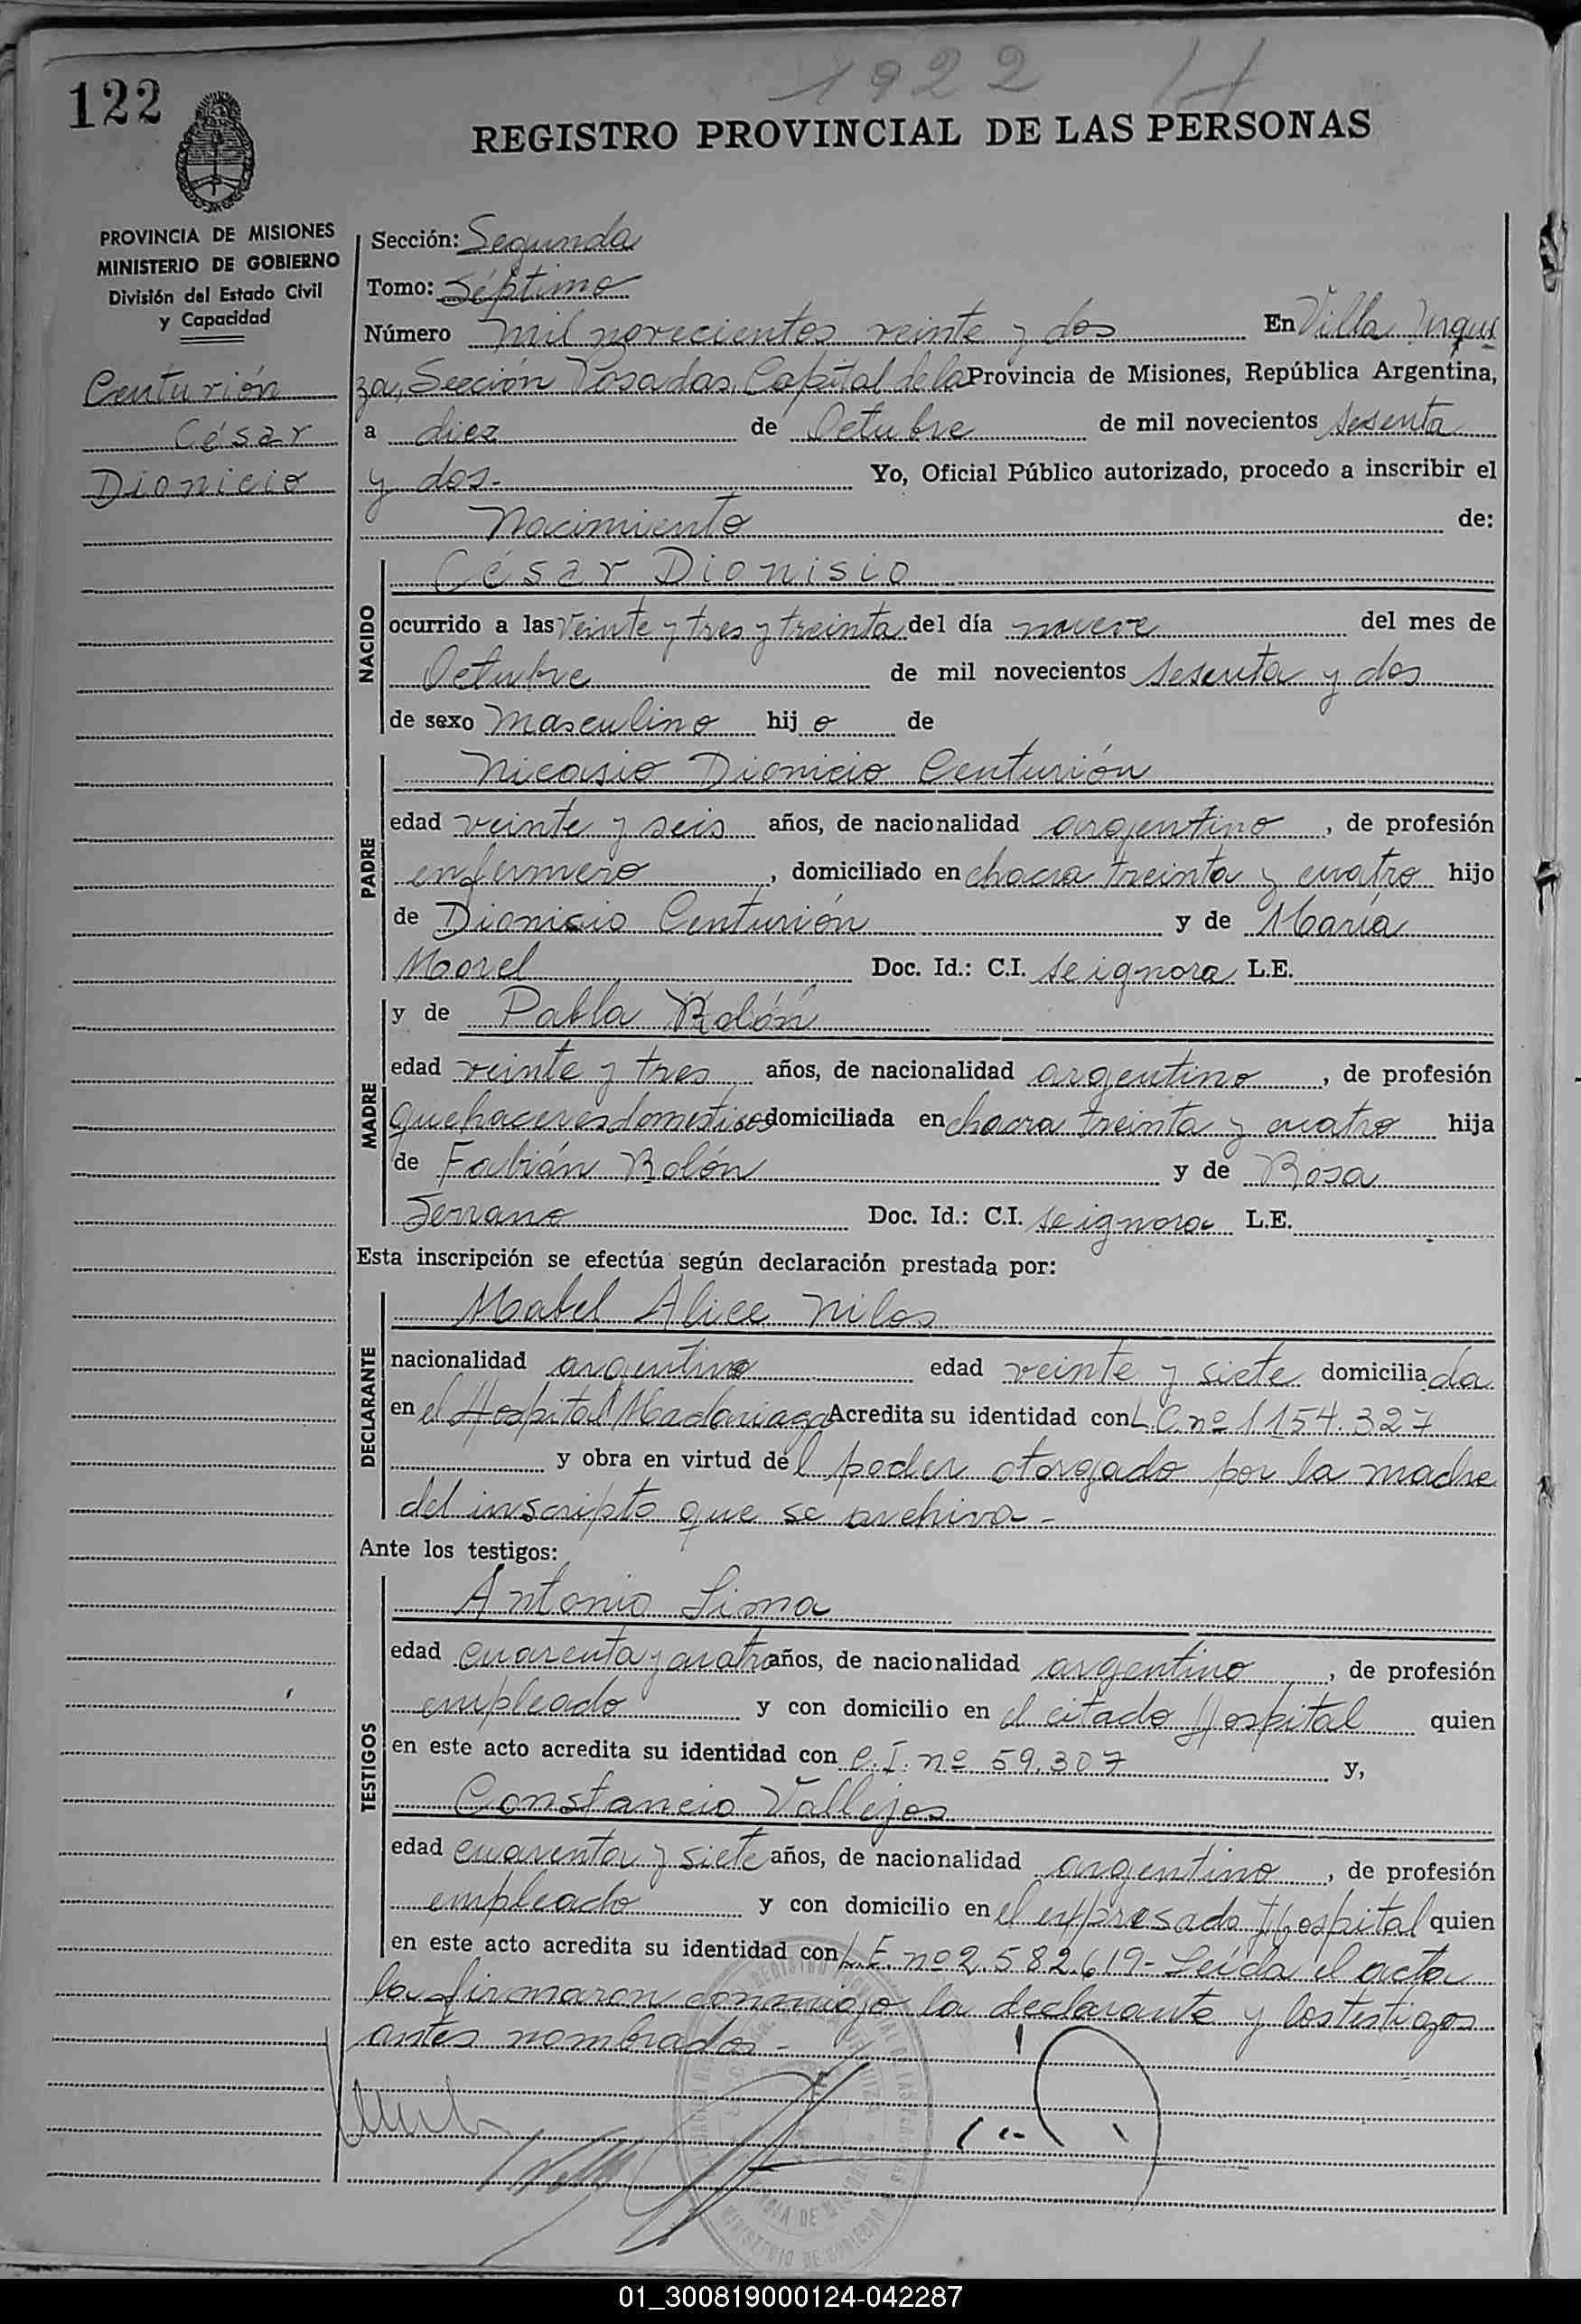 1922 H
122
REGISTRO PROVINCIAL DE LAS PERSONAS
PROVINCIA DE MISIONES
MINISTERIO DE GOBIERNO
División del Estado Civil
y Capacidad
Centurión
César
Dionicio
Sección: Segunda
Tomo: Séptimo
Número mil novecientos veinte y dos En Villa Urqui
za, Sección Posadas, Capital de la Provincia de Misiones, República Argentina,
a diez de Octubre de mil novecientos sesenta
y dos.- Yo, Oficial Público autorizado, procedo a inscribir el
Nacimiento de:
NACIDO
César Dionisio
ocurrido a las veinte y tres y treinta del día nueve del mes de
Octubre de mil novecientos sesenta y dos
de sexo masculino hijo de
PADRE
Nicasio Dionicio Centurión
edad veinte y seis años, de nacionalidad argentino, de profesión
enfermero, domiciliado en chacra treinta y cuatro hijo
de Dionicio Centurión y de María
Morel Doc. Id.: C.I. se ignora L.E.
MADRE
y de Pabla Rolón
edad veinte y tres años, de nacionalidad argentino, de profesión
quehaceres domesticos domiciliada en chacra treinta y cuatro hija
de Fabián Rolón y de Rosa
Serrano Doc. Id.: C.I. se ignora L.E.
Esta inscripción se efectúa según declaración prestada por:
DECLARANTE
Mabel Alice Nilos
nacionalidad argentina edad veinte y siete domiciliada
en el Hospital Madariaga Acredita su identidad con L.C. nº 1.154.327
y obra en virtud del poder otorgado por la madre
del inscripto que se archiva.-
Ante los testigos:
TESTIGOS
Antonio Lima
edad cuarenta y cuatro años, de nacionalidad argentino, de profesión
empleado y con domicilio en el citado Hospital quien
en este acto acredita su identidad con C.I. nº 59.307 y,
Constancio Vallejos
edad cuarenta y siete años, de nacionalidad argentino, de profesión
empleado y con domicilio en el expresado Hospital quien
en este acto acredita su identidad con L.E. nº 2.582.619- Leída el acta
la firmaron conmigo la declarante y los testigos
antes nombrados.-
01_300819000124-042287